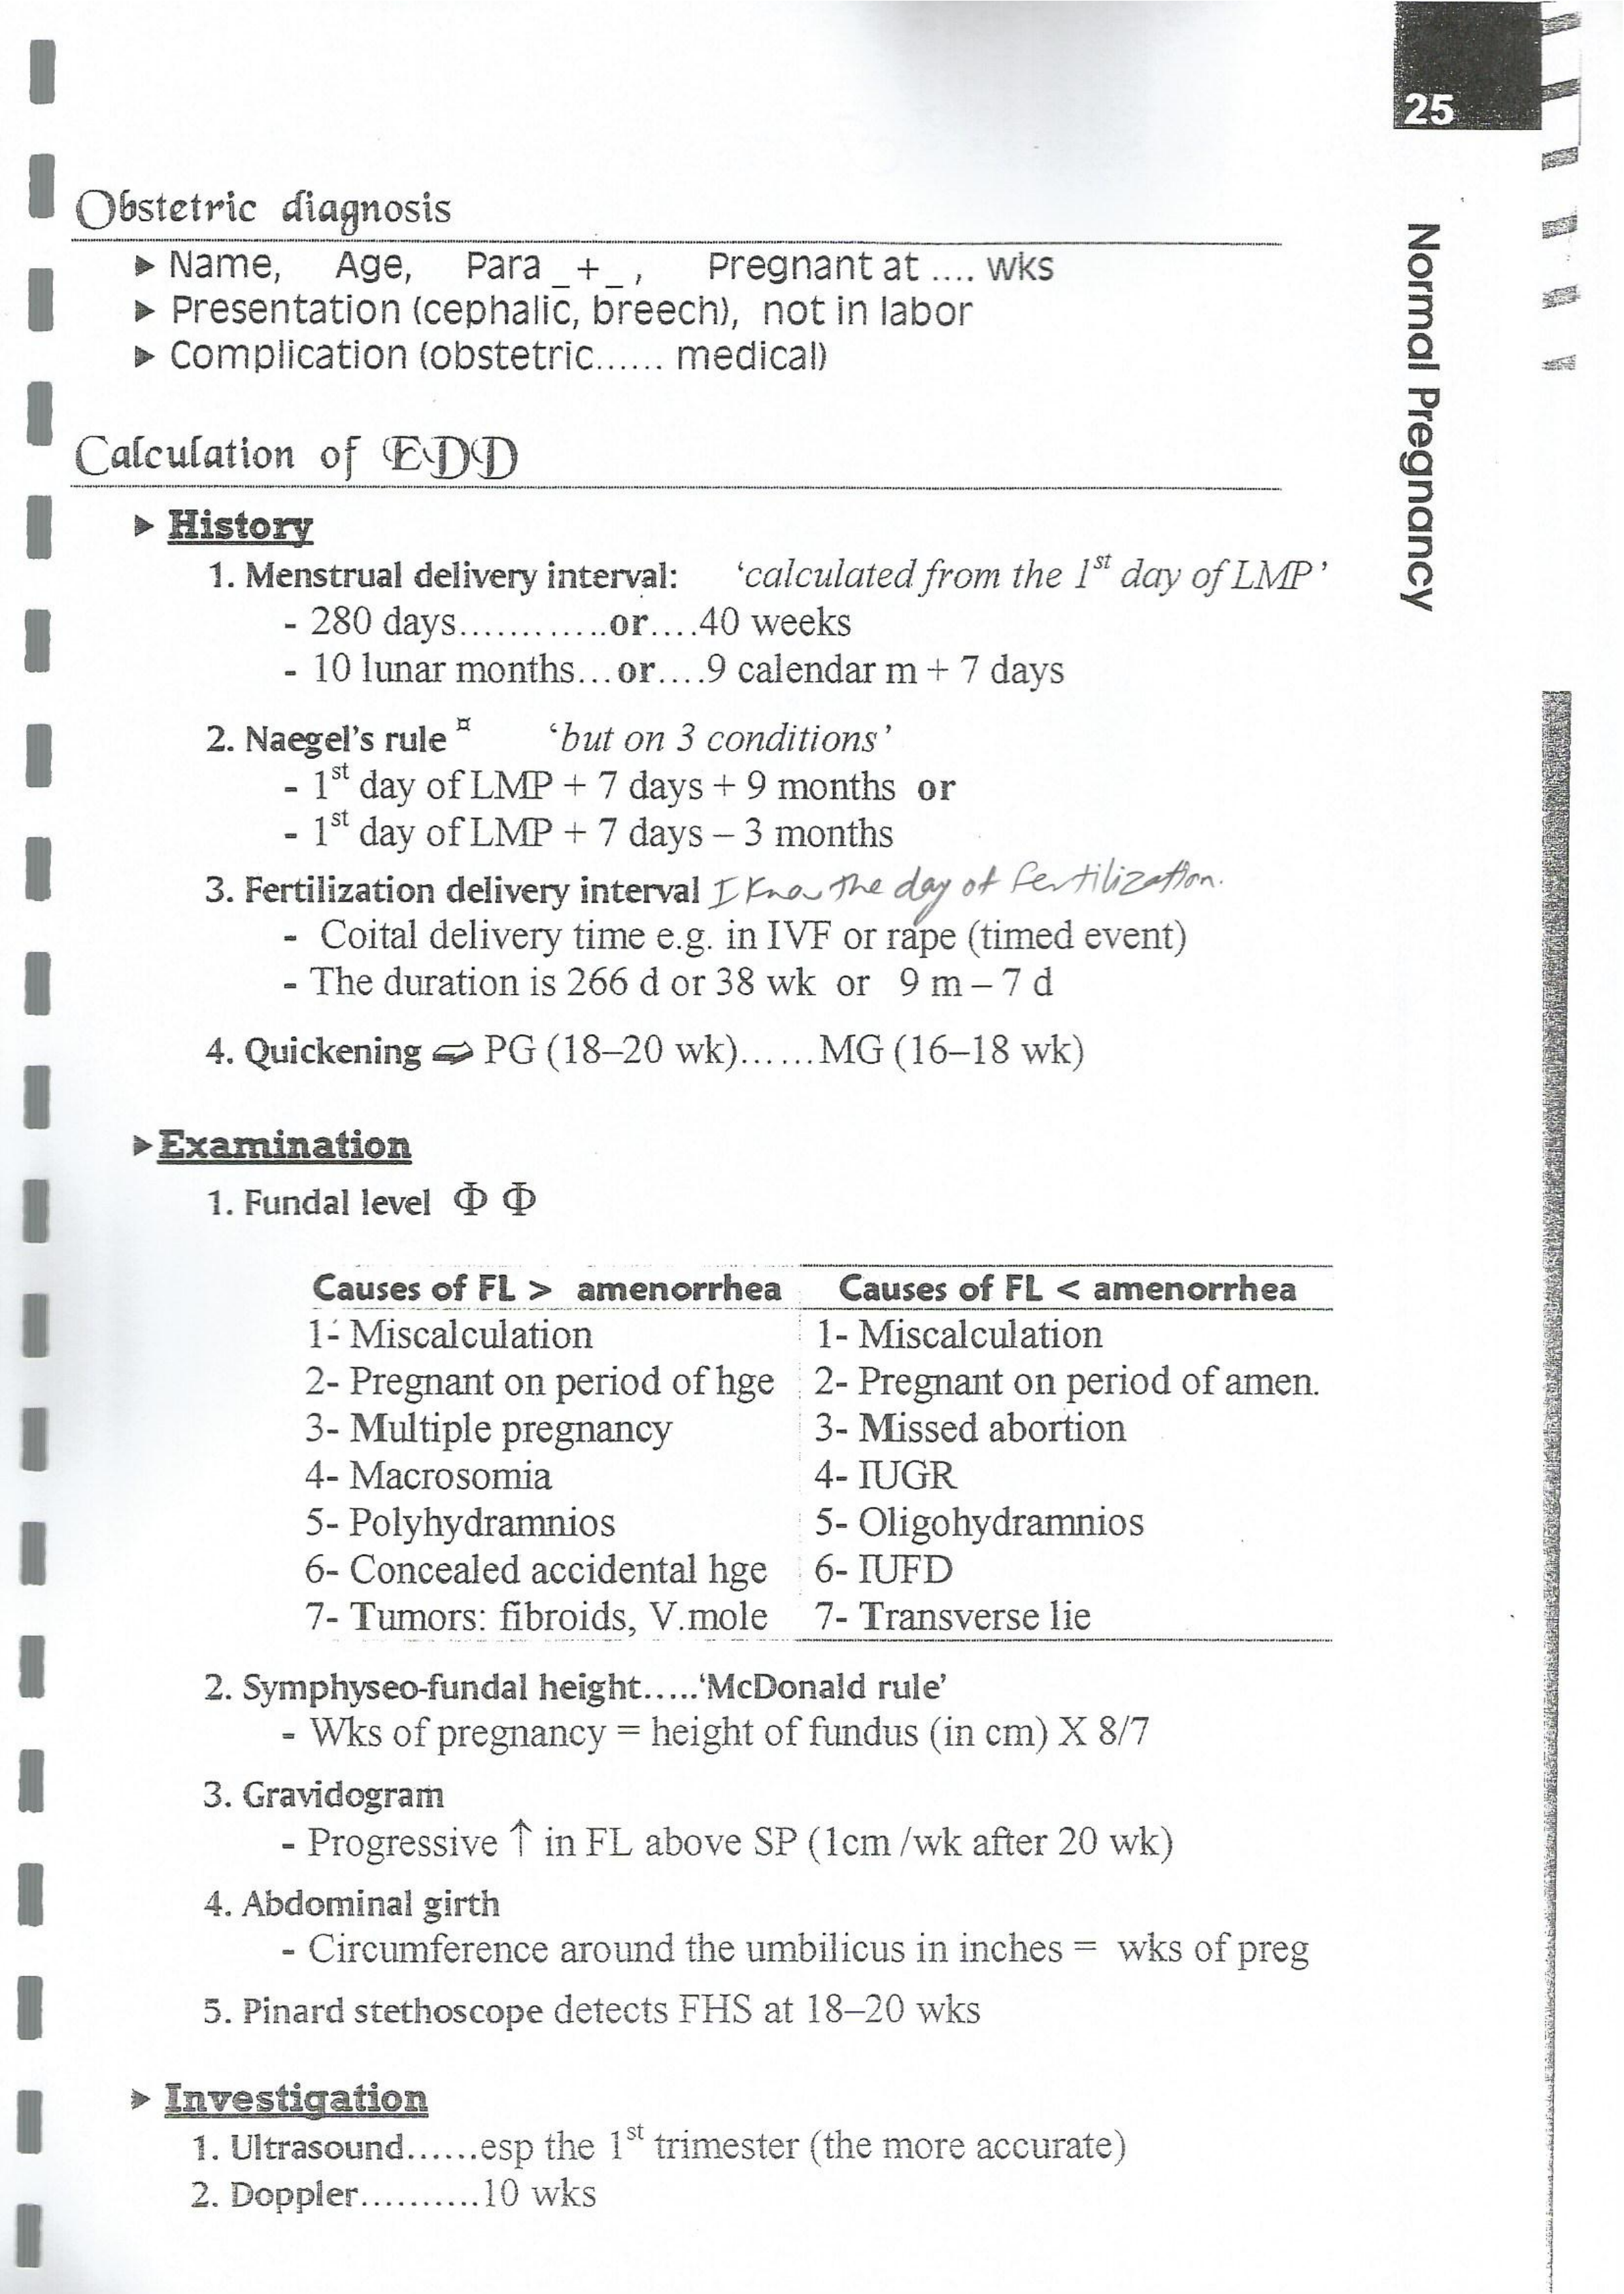 25
Normal Pregnancy
Obstetric diagnosis
► Name, Age, Para _+_, Pregnant at .... wks
► Presentation (cephalic, breech), not in labor
► Complication (obstetric...... medical)
Calculation of EDD
► History
1. Menstrual delivery interval: ‘calculated from the 1st day of LMP’
- 280 days.............or....40 weeks
- 10 lunar months...or....9 calendar m + 7 days
2. Naegel's rule ¤ ‘but on 3 conditions’
- 1st day of LMP + 7 days + 9 months or
- 1st day of LMP + 7 days – 3 months
3. Fertilization delivery interval I Know the day of fertilization.
- Coital delivery time e.g. in IVF or rape (timed event)
- The duration is 266 d or 38 wk or 9 m – 7 d
4. Quickening ⇨ PG (18–20 wk)......MG (16–18 wk)
►Examination
1. Fundal level Φ Φ
Causes of FL > amenorrhea Causes of FL < amenorrhea
1- Miscalculation 1- Miscalculation
2- Pregnant on period of hge 2- Pregnant on period of amen.
3- Multiple pregnancy 3- Missed abortion
4- Macrosomia 4- IUGR
5- Polyhydramnios 5- Oligohydramnios
6- Concealed accidental hge 6- IUFD
7- Tumors: fibroids, V.mole 7- Transverse lie
2. Symphyseo-fundal height.....‘McDonald rule’
- Wks of pregnancy = height of fundus (in cm) X 8/7
3. Gravidogram
- Progressive ↑ in FL above SP (1cm /wk after 20 wk)
4. Abdominal girth
- Circumference around the umbilicus in inches = wks of preg
5. Pinard stethoscope detects FHS at 18–20 wks
► Investigation
1. Ultrasound......esp the 1st trimester (the more accurate)
2. Doppler..........10 wks